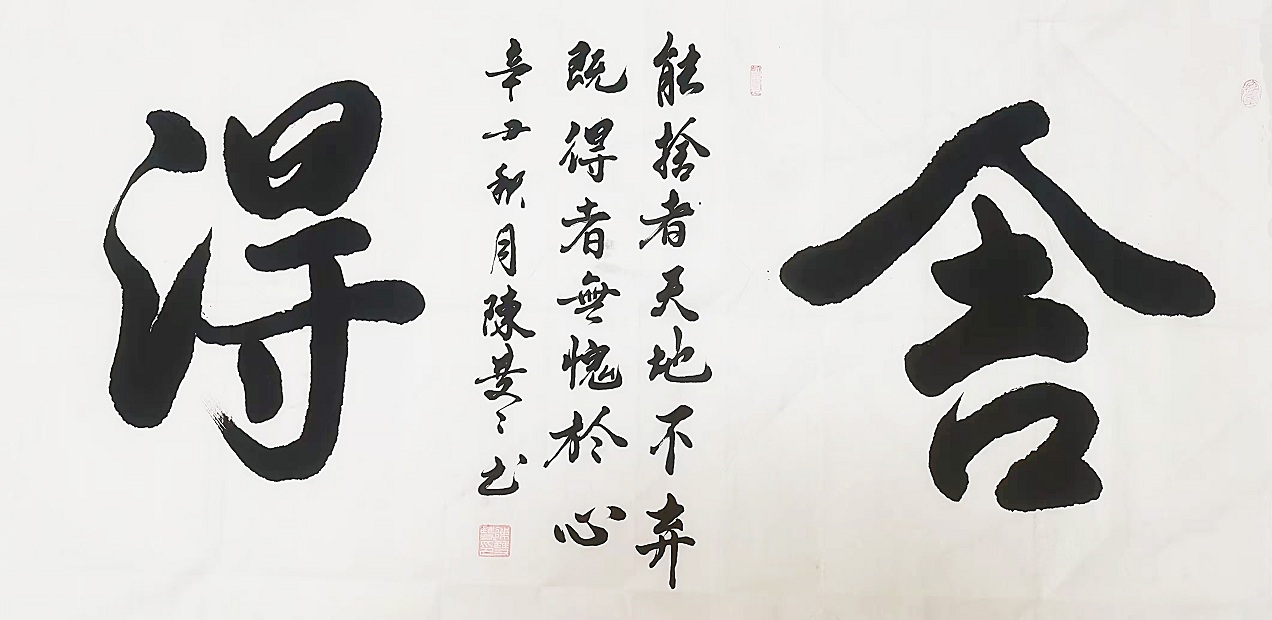 舍
能捨者天地不弃
既得者無愧於心
辛丑秋月陳
书
得